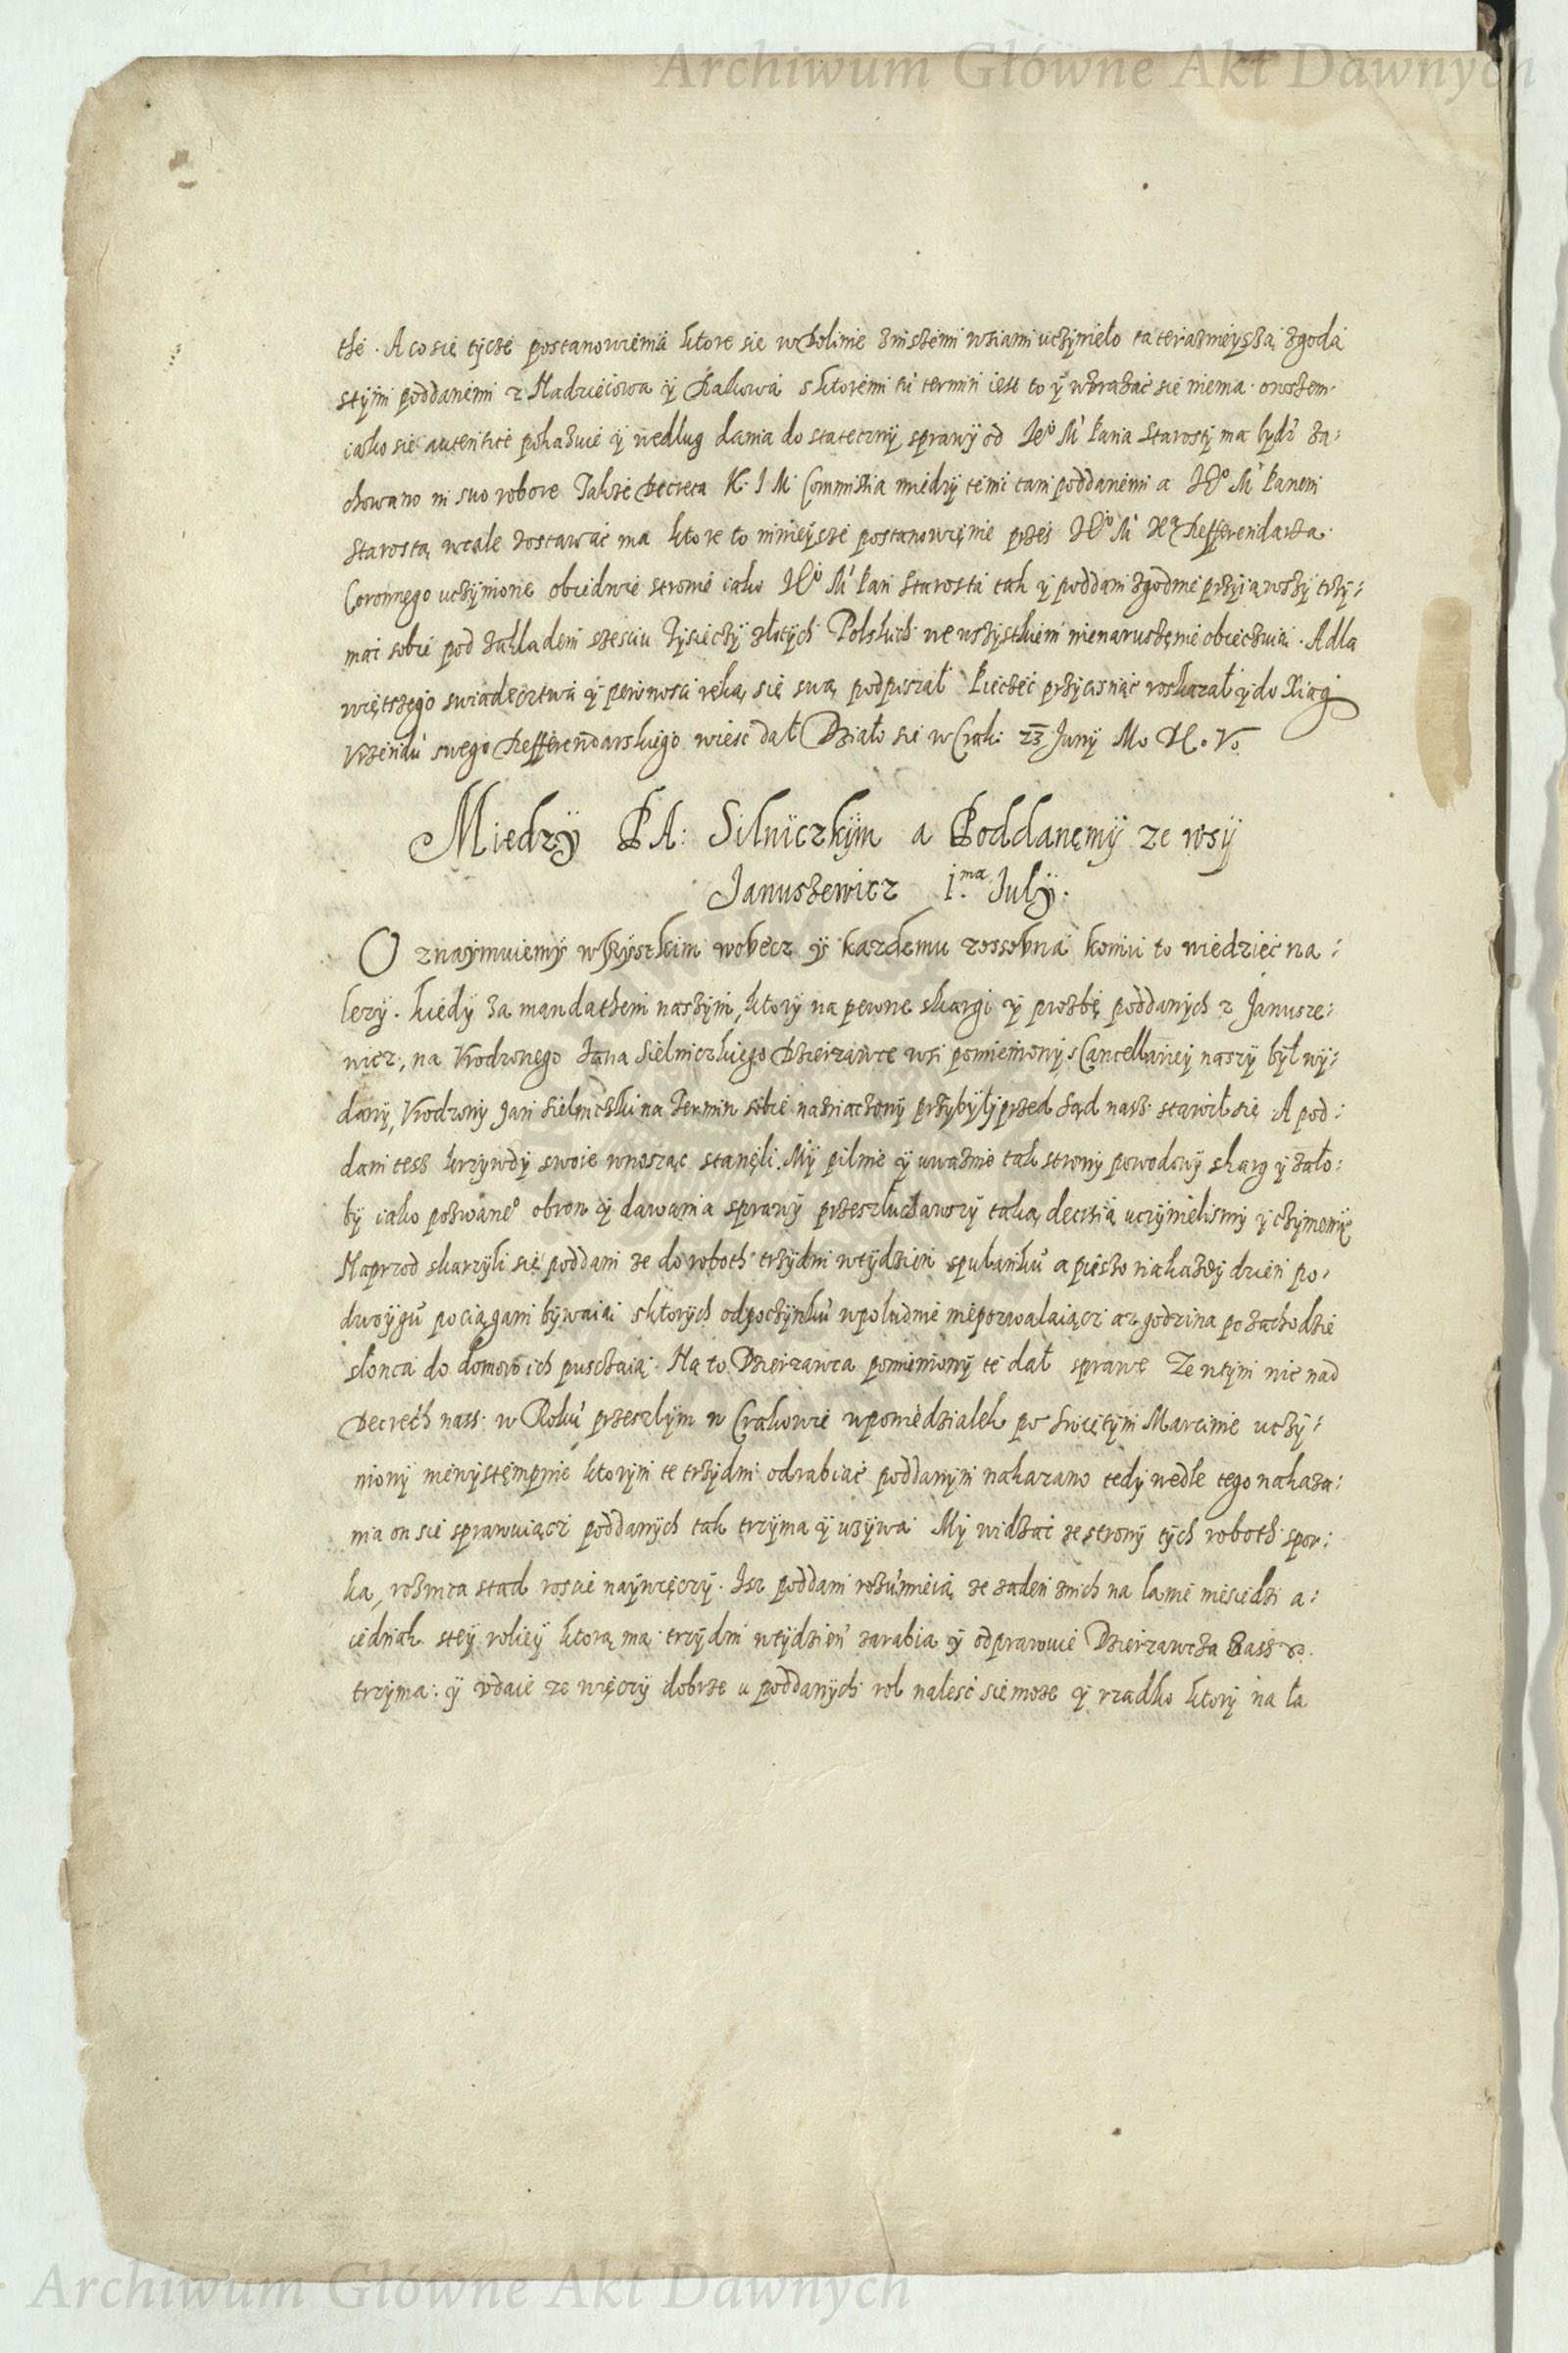 Archiwum Główne Akt Dawnych
the. A co się tycze postanowienia ktore się w Dolinie z niszemi wsiami uczynieło ta teraznieysza zgoda
s tymi poddanemi z Nadzieiowa y Rakowa s ktoremi tu termin iest to y wzrazac się niema. owszem
iako się autentice pokazuie y według dania do stateczny sprawy od Je° M Pana Starosty ma bydz za:
chowano in suo robore Takze Decreta K. J M. Commissia miedzy temi tam poddanemi a JE° M Panem
Starostą wcale zostawać ma ktore to ninieysze postanowięnie przes JE° M X Refferendarza
Coronnego uczynione obiedwie stronie iako JE° M Pan Starosta tak y poddani zgodnie przyiąwszy trzy:
mac sobie pod zakladem szesciu Tysieczy złotych Polskich we wszystkiem nienaruszęnie obieczuią. A dla
więtszego swiadecztwa y pewnosci ręką się swą podpiszał Pieczęć przycisnąć roskazał y do Xiąg
Vrzendu swego Refferendarskiego wniesc dał Działo się w Crak: 23 Juny Mo D X. Vo.
Miedzy PA: Silniczkym a Poddanęmy ze wsy
Januszewicz 1.ma July.
Oznaymuiemy wszystkim wobecz y kazdemu zossobna komu to wiedzieć na:
lezy. kiedy za mandathem naszym, ktory na pewne skargi y prozbę poddanych z Janusze:
wicz, na Vrodzonego Jana Sielniczkiego Dzierzawce wsi pomieniony s Cancellariey naszy był wy:
dany, Vrodzony Jan Sielniczki na Termin sobie naznaczony przybyły przed Sąd nasz stawił się. A pod:
dani tesz krzywdy swoie wnosząc stanęli. My pilnie y uwaznie tak strony powodowy skarg y zało:
by iako pozwane° obron y dawania sprawy przeszluchawszy taką decisią uczynielismy y czyniemy
Naprzod skarzyli się poddani ze do roboth trzy dni w tydzien spulanku a pieszo na kazdy dzien po:
dwoygu pociągani bywaią s ktorych odpoczynku w poludnie niepozwalaiącz az godzina po zachodzie
słonca do domow ich pusczaią. Na to Dzierzawca pomieniony te dał sprawę Ze w tym nic nad
Decreth nasz w Roku przeszlym w Crakowie w poniedzialek po swiętym Marcinie uczy:
niony niewystęmpuie ktorym te trzy dni odrabiać poddanym nakazano tedy wedle tego nakaza:
nia on się sprawuiącz poddanych tak trzyma y uzywa. My widząc ze strony tych roboth spor:
ka, roznica stąd roscie naywięczy. Isz poddani rozumieią ze zaden z nich na łanie niesiedzi a:
iednak s tey roliey ktorą ma trzy dni w tydzien zarabia y odprawuie Dzierzawcza zasz
trzyma. y vdaie ze więczy dobrze u poddanych rol naleść się moze y rzadko ktory na ła
Archiwum Główne Akt Dawnych